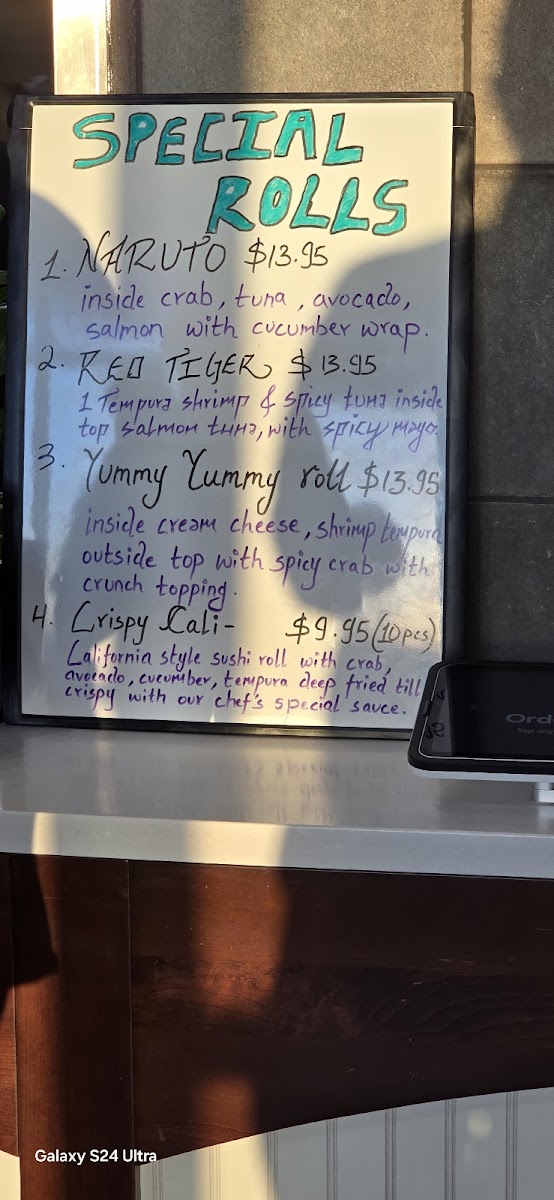 SPECIAL
ROLLS
1. NARUTO $13.95
inside crab, tuna, avocado,
salmon with cucumber wrap.
2. RED TIGER $13.95
1 Tempura shrimp & spicy tuna inside
top salmon tuna, with spicy mayo.
3. Yummy Yummy roll $13.95
inside cream cheese, shrimp tempura
outside top with spicy crab with
crunch topping.
4. Crispy Cali- $9.95 (10pcs)
California style sushi roll with crab,
avocado, cucumber, tempura deep fried till
crispy with our chef's special sauce.
Ord
Tap any
Galaxy S24 Ultra